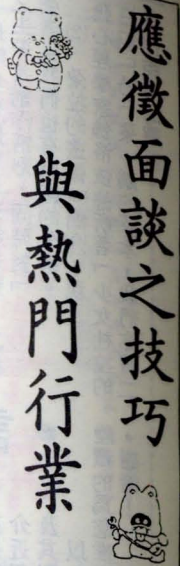 應徵面談之技巧
與熱門行業